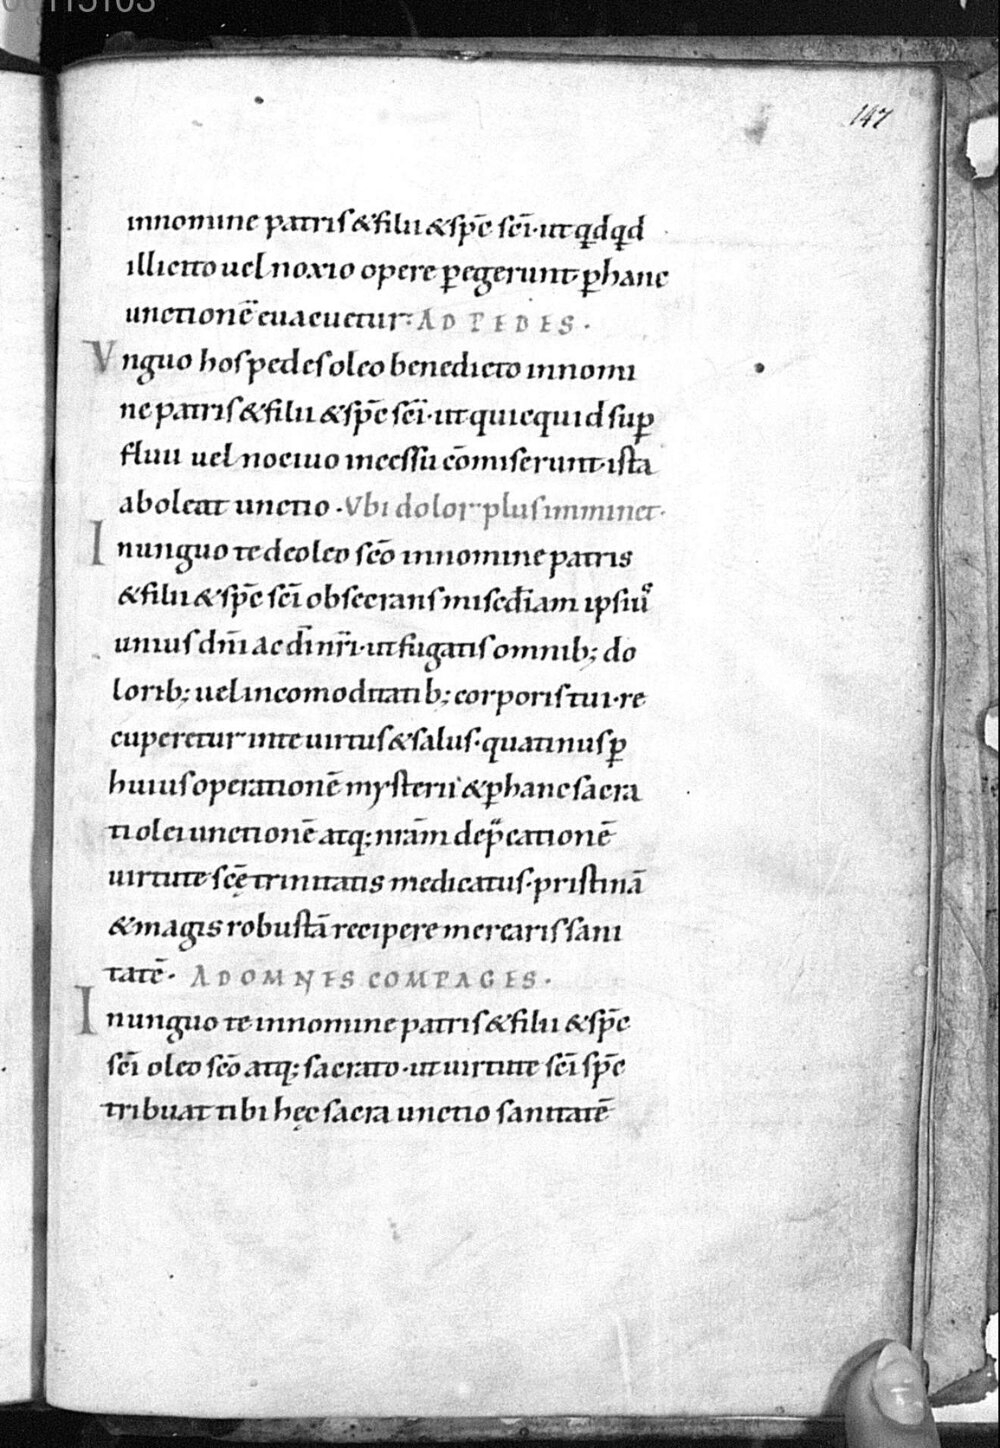 147
innomine patris & filii & sp̄c sc̄i · ut qd̵qd̵
illicito uel noxio opere ꝑegerunt · ꝑ hanc
unctionē euacuetur : AD PEDES .
Vnguo hos pedes oleo benedicto innomi
ne patris & filii & sp̄c sc̄i · ut quicquid suꝑ
fluu uel nociuo incessū cōmiserunt · ista
aboleat unctio . Vbi dolor plus imminet .
Inunguo te de oleo sc̄o innomine patris
& filii & sp̄c sc̄i obsecrans misc̄diam ipsiuꝰ
unius dn̄i ac dī nr̄i · ut fugatis omnib; do
lorib; uel incomoditatib; corporis tui · re
cuperetur inte uirtus & salus · quatinus ꝑ
huius operationē mysterii & ꝑ hanc sacra
ti olei unctionē atq; nr̄am dep̄cationē
uirtute sc̄ę trinitatis medicatus · pristinā
& magis robustā recipere merearis sani
tatē · AD OMNES COMPAGES .
Inunguo te innomine patris & filii & sp̄c
sc̄i oleo sc̄o atq; sacrato · ut uirtute sc̄i sp̄c
tribuat tibi hęc sacra unctio sanitatē